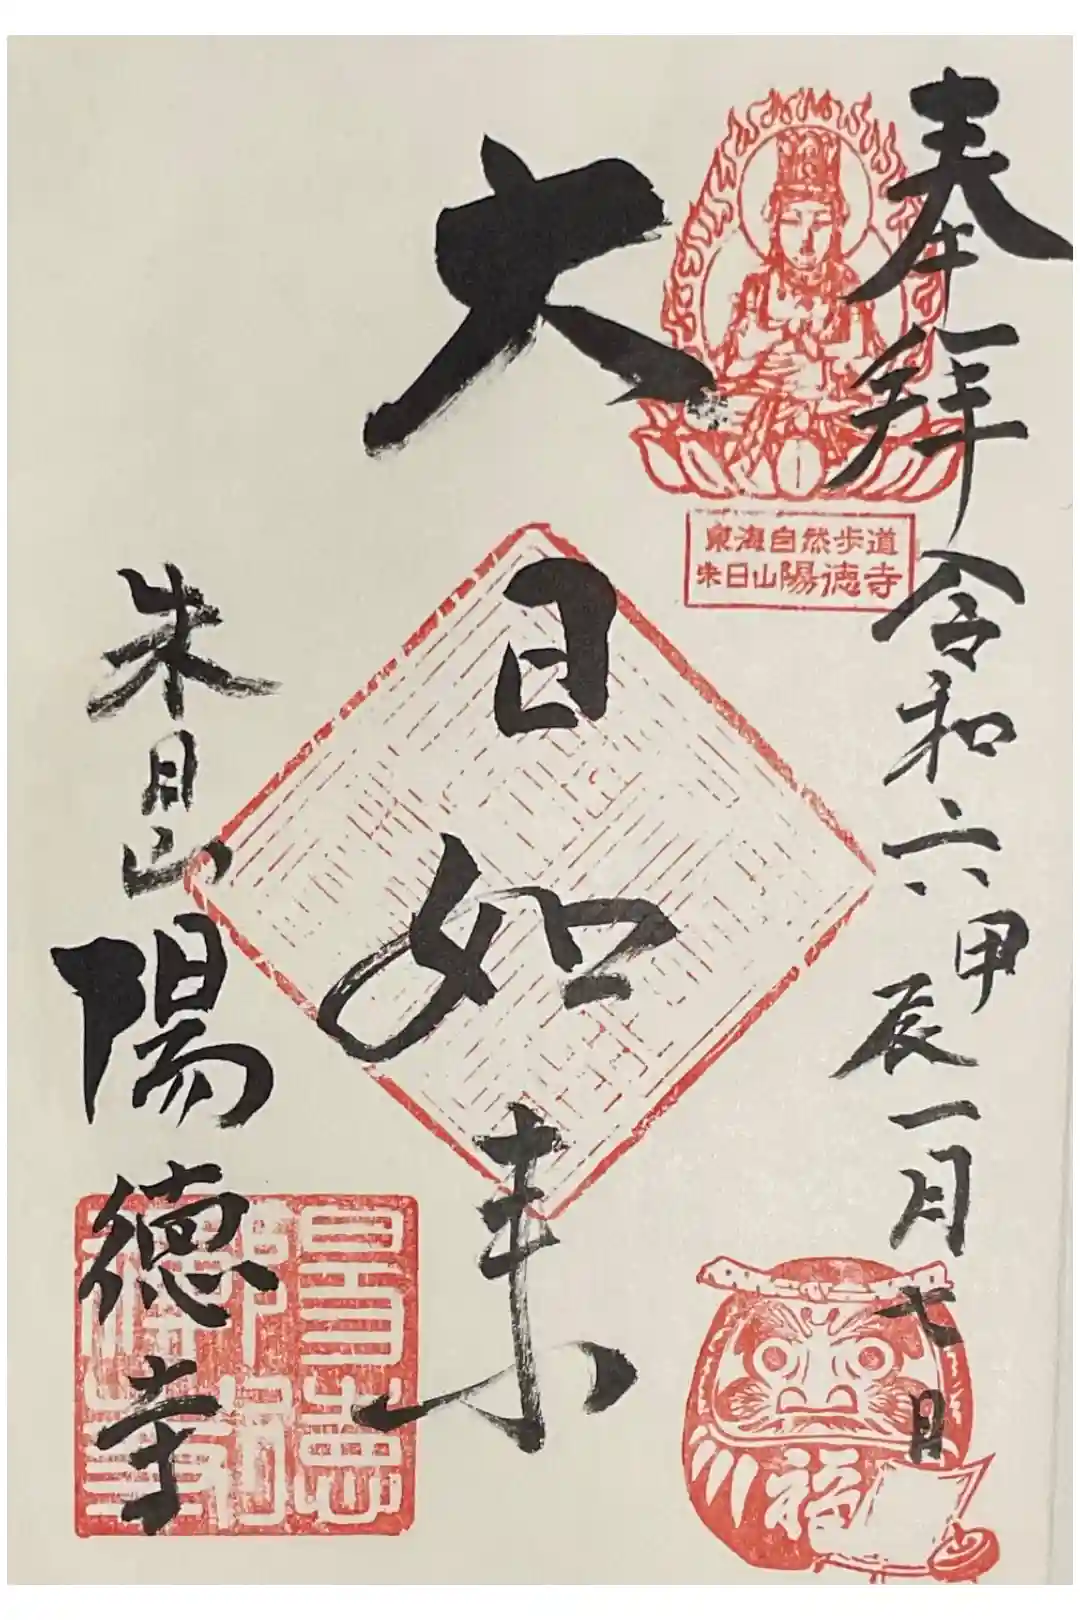 奉拝 令和六甲辰一月七日
東海自然歩道
朱日山陽徳寺
大日如来
朱日山 陽徳寺
福